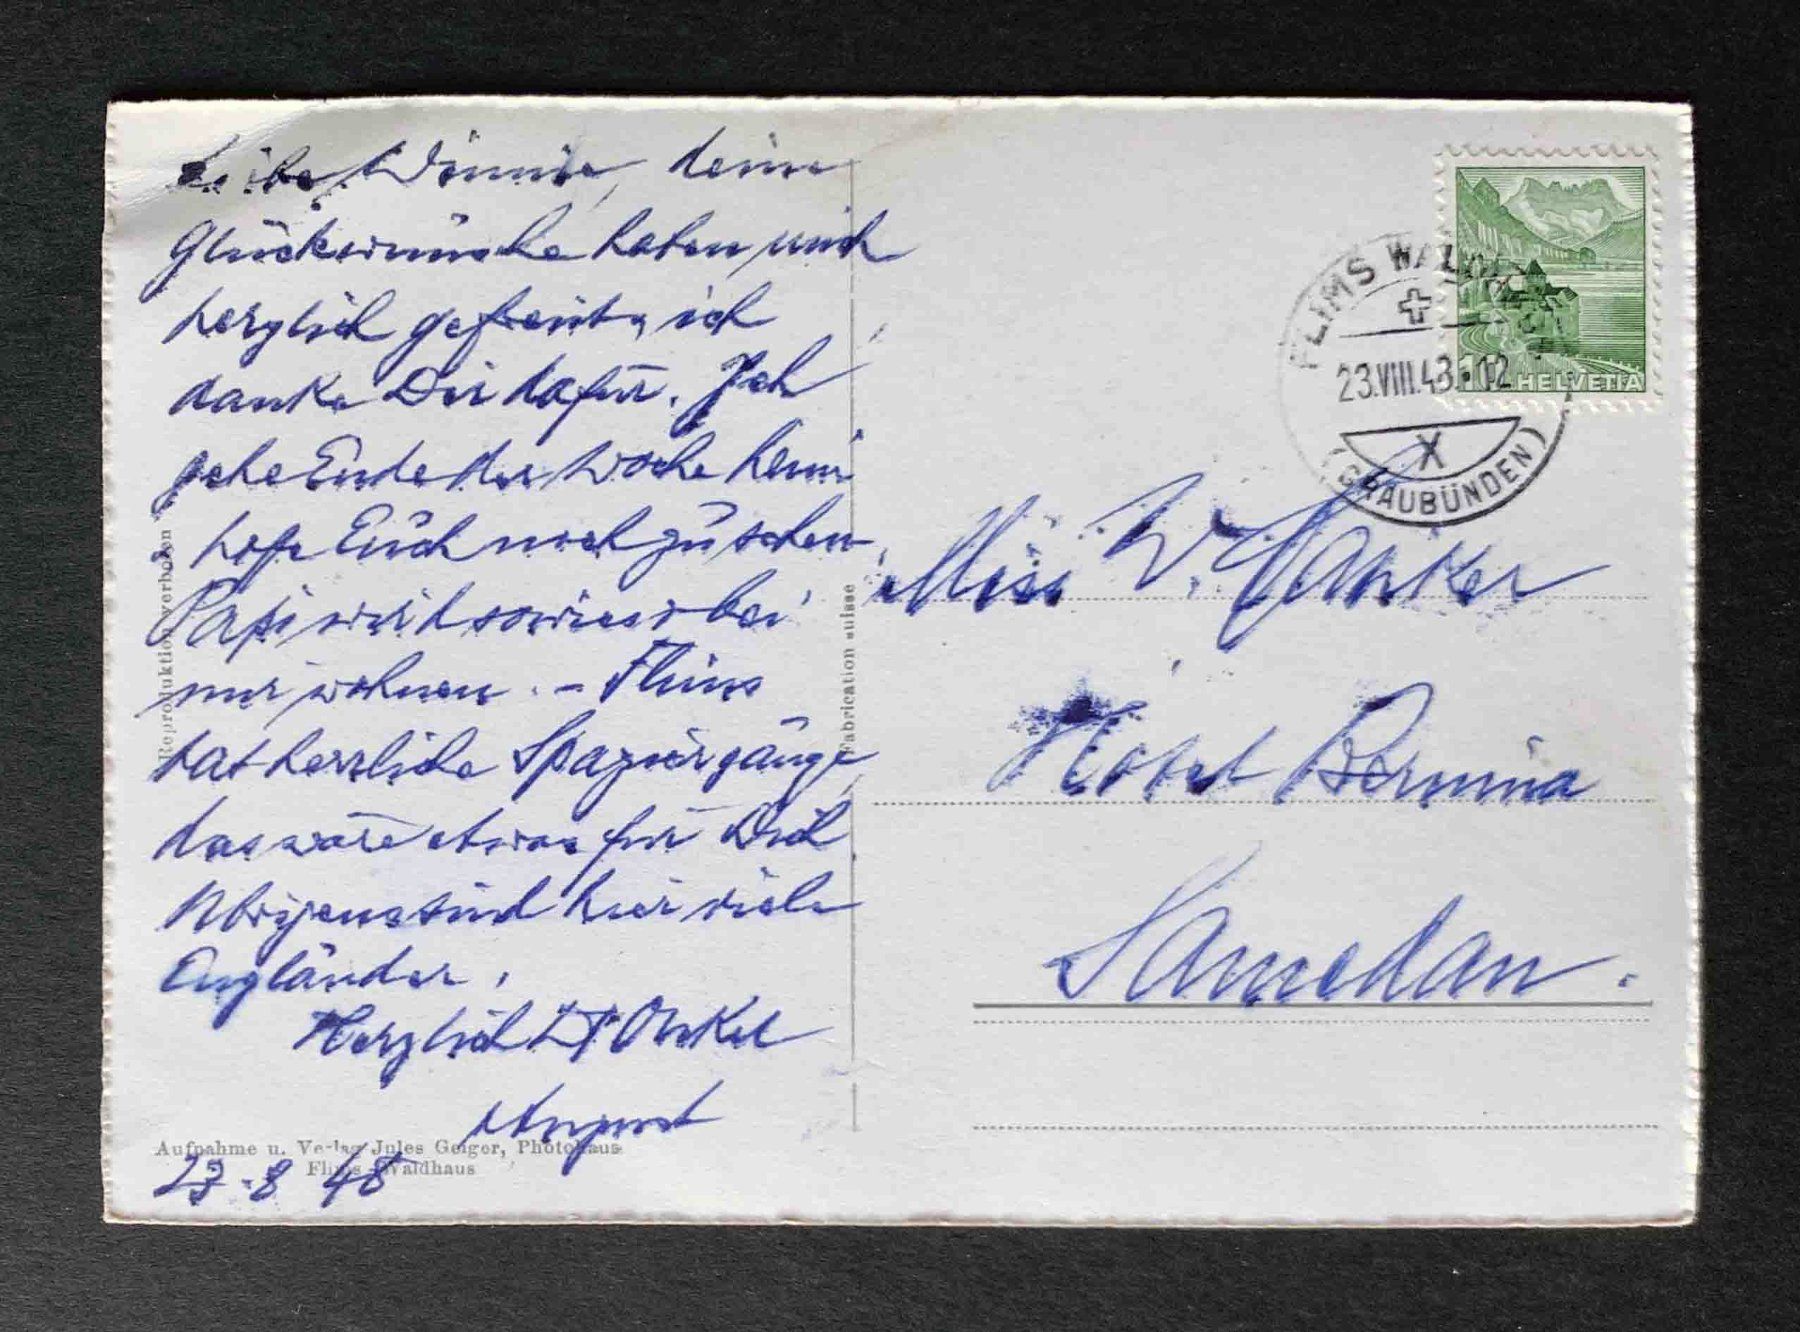 Liebe Winnie, deine
Glückwünsche haben mich
herzlich gefreut, ich
danke Dir dafür. Ich
gehe Ende der Woche heim
hoffe Euch noch zu sehen
Papi wird sowieso bei
mir wohnen. – Flims
hat herrliche Spaziergänge,
das wäre etwas für Dich
Übrigens sind hier viele
Engländer.
Herzlich Onkel
August
23.8 48
Aufnahme u. Verlag Jules Geiger, Photohaus
Flims Waldhaus
Reproduktion verboten
Fabrication suisse
FLIMS WALDHAUS
23.VIII.48. 12
X
(GRAUBÜNDEN)
10 HELVETIA
Miss W.
Hotel Bernina
Samedan.